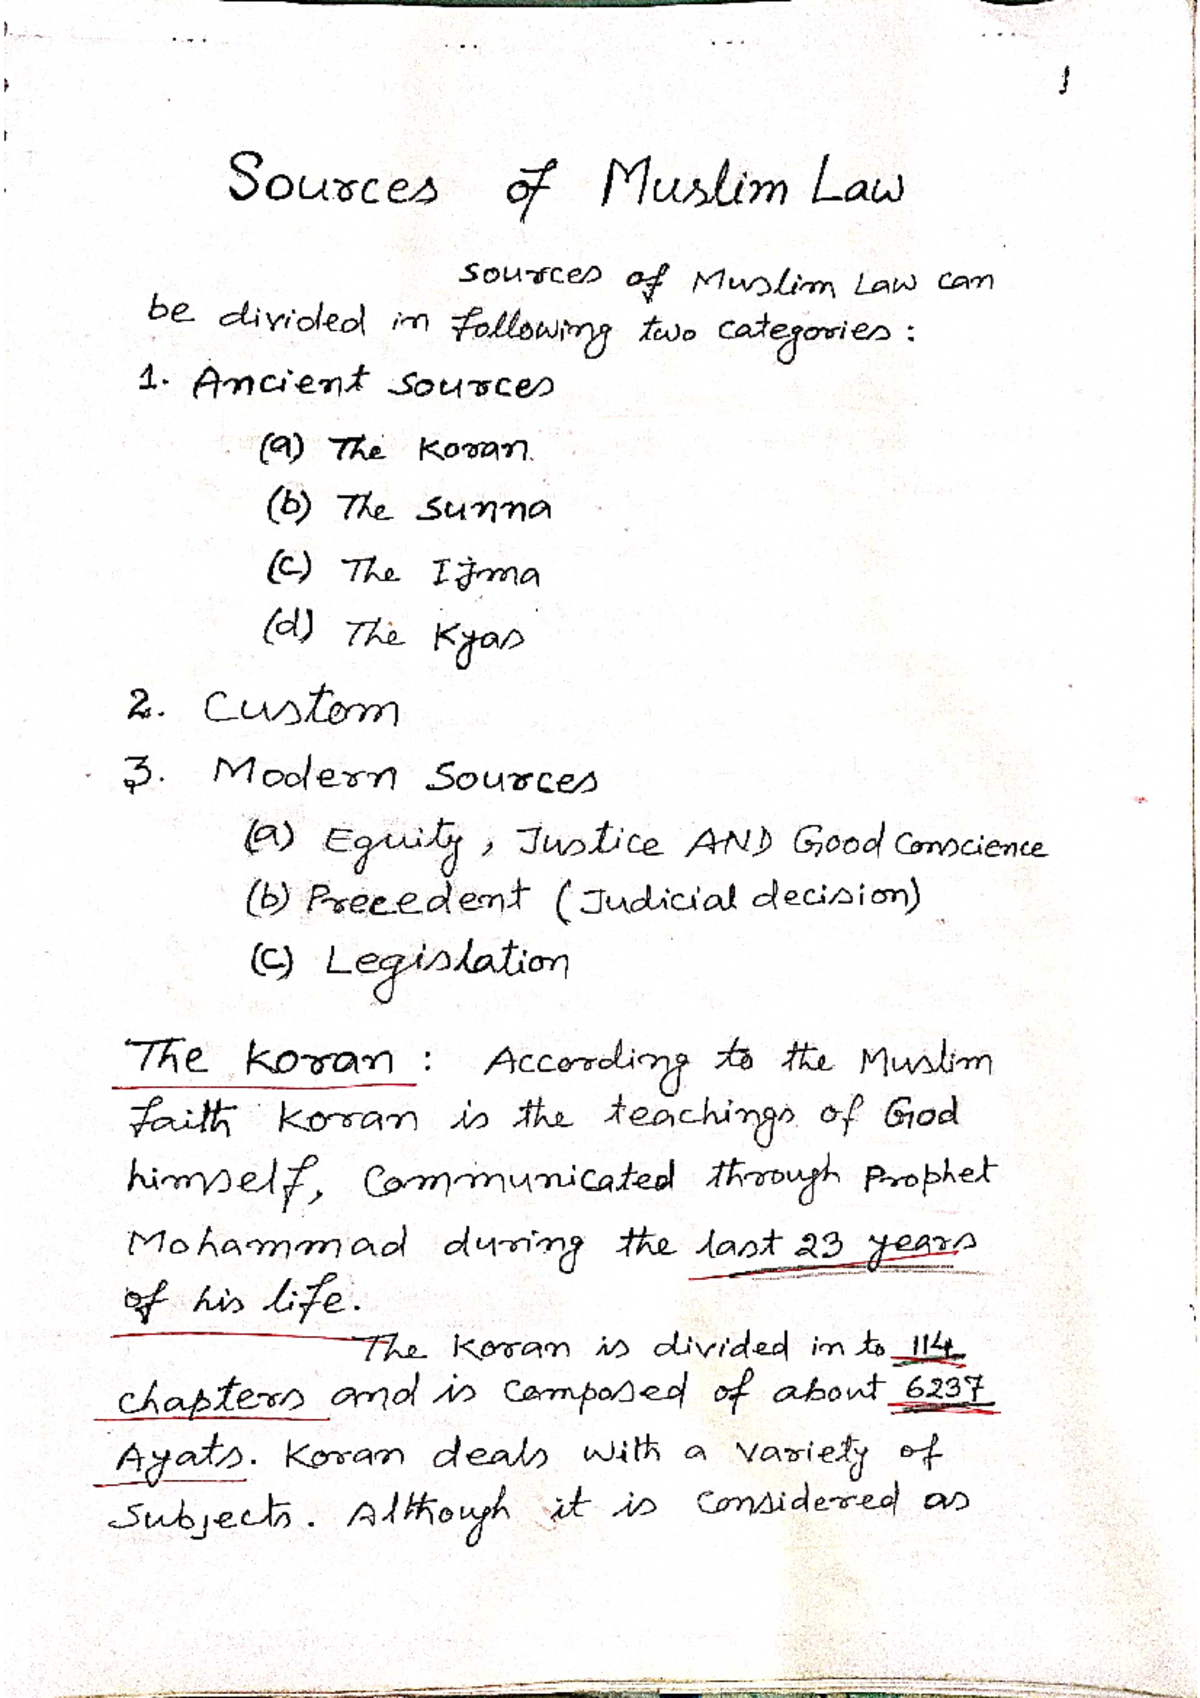 1
Sources of Muslim Law
Sources of Muslim Law can
be divided in following two categories :
1. Ancient Sources
(a) The Koran.
(b) The Sunna
(c) The Ijma
(d) The Kyas
2. Custom
3. Modern Sources
(a) Equity, Justice AND Good Conscience
(b) Precedent (Judicial decision)
(c) Legislation
The Koran : According to the Muslim
faith Koran is the teachings of God
himself, Communicated through Prophet
Mohammad during the last 23 years
of his life.
The Koran is divided in to 114
chapters and is composed of about 6237
Ayats. Koran deals with a variety of
Subjects. Although it is considered as